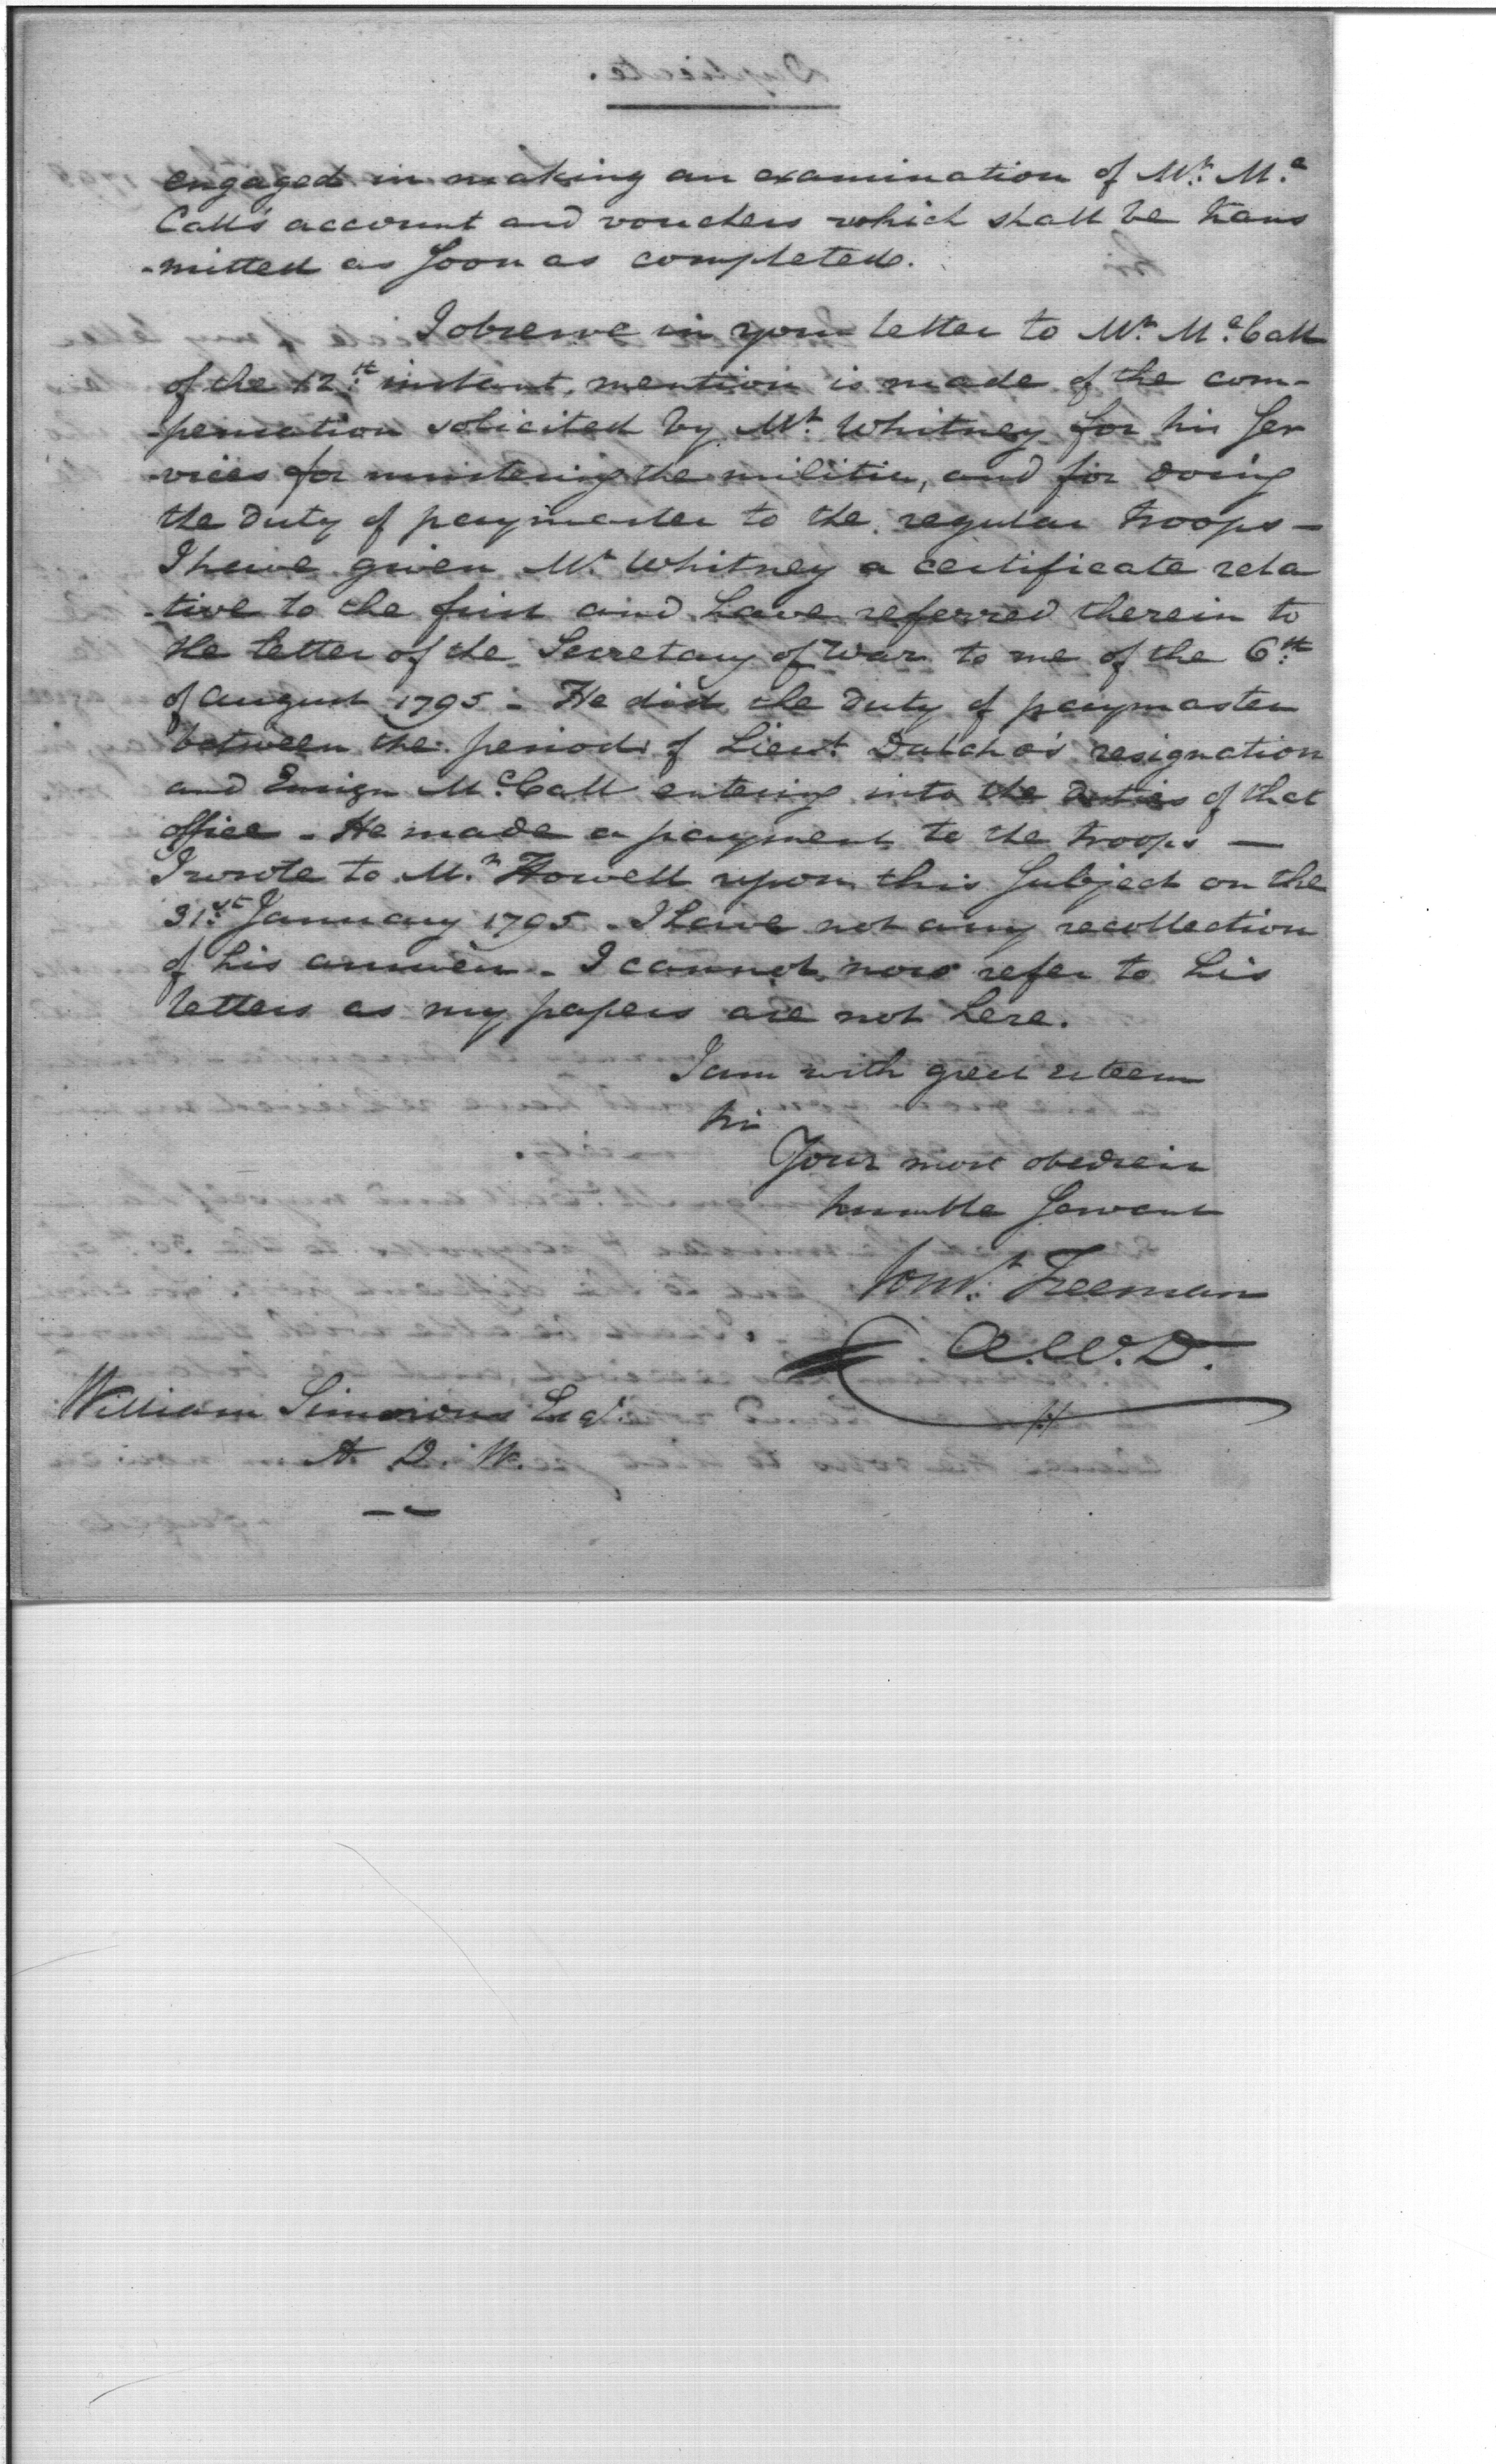 engaged in making an examination of Mr. Mc
Call's account and vouchers which shall be trans
-mitted as soon as completed.
I observe in your letter to Mr. McCall
of the 12th instant, mention is made of the com-
-pensation solicited by Mr. Whitney for his ser
-vices for mustering the militia, and for doing
the duty of paymaster to the regular troops —
I have given Mr. Whitney a certificate rela
-tive to the first and have referred therein to
the letter of the Secretary of War to me of the 6th
of August 1795 - He did the duty of paymaster
between the period of Lieut. resignation
and Ensign McCall entering into the duties of that
office - He made a payment to the troops —
I wrote to Mr. Howell upon this subject on the
31st January 1795 - I have not any recollection
of his answer - I cannot now refer to his
letters as my papers are not here.
I am with great esteem
Sir
Your most obedient
humble Servant
Freeman
A.W.D.
William Simmons Esqr.
A. D. W.